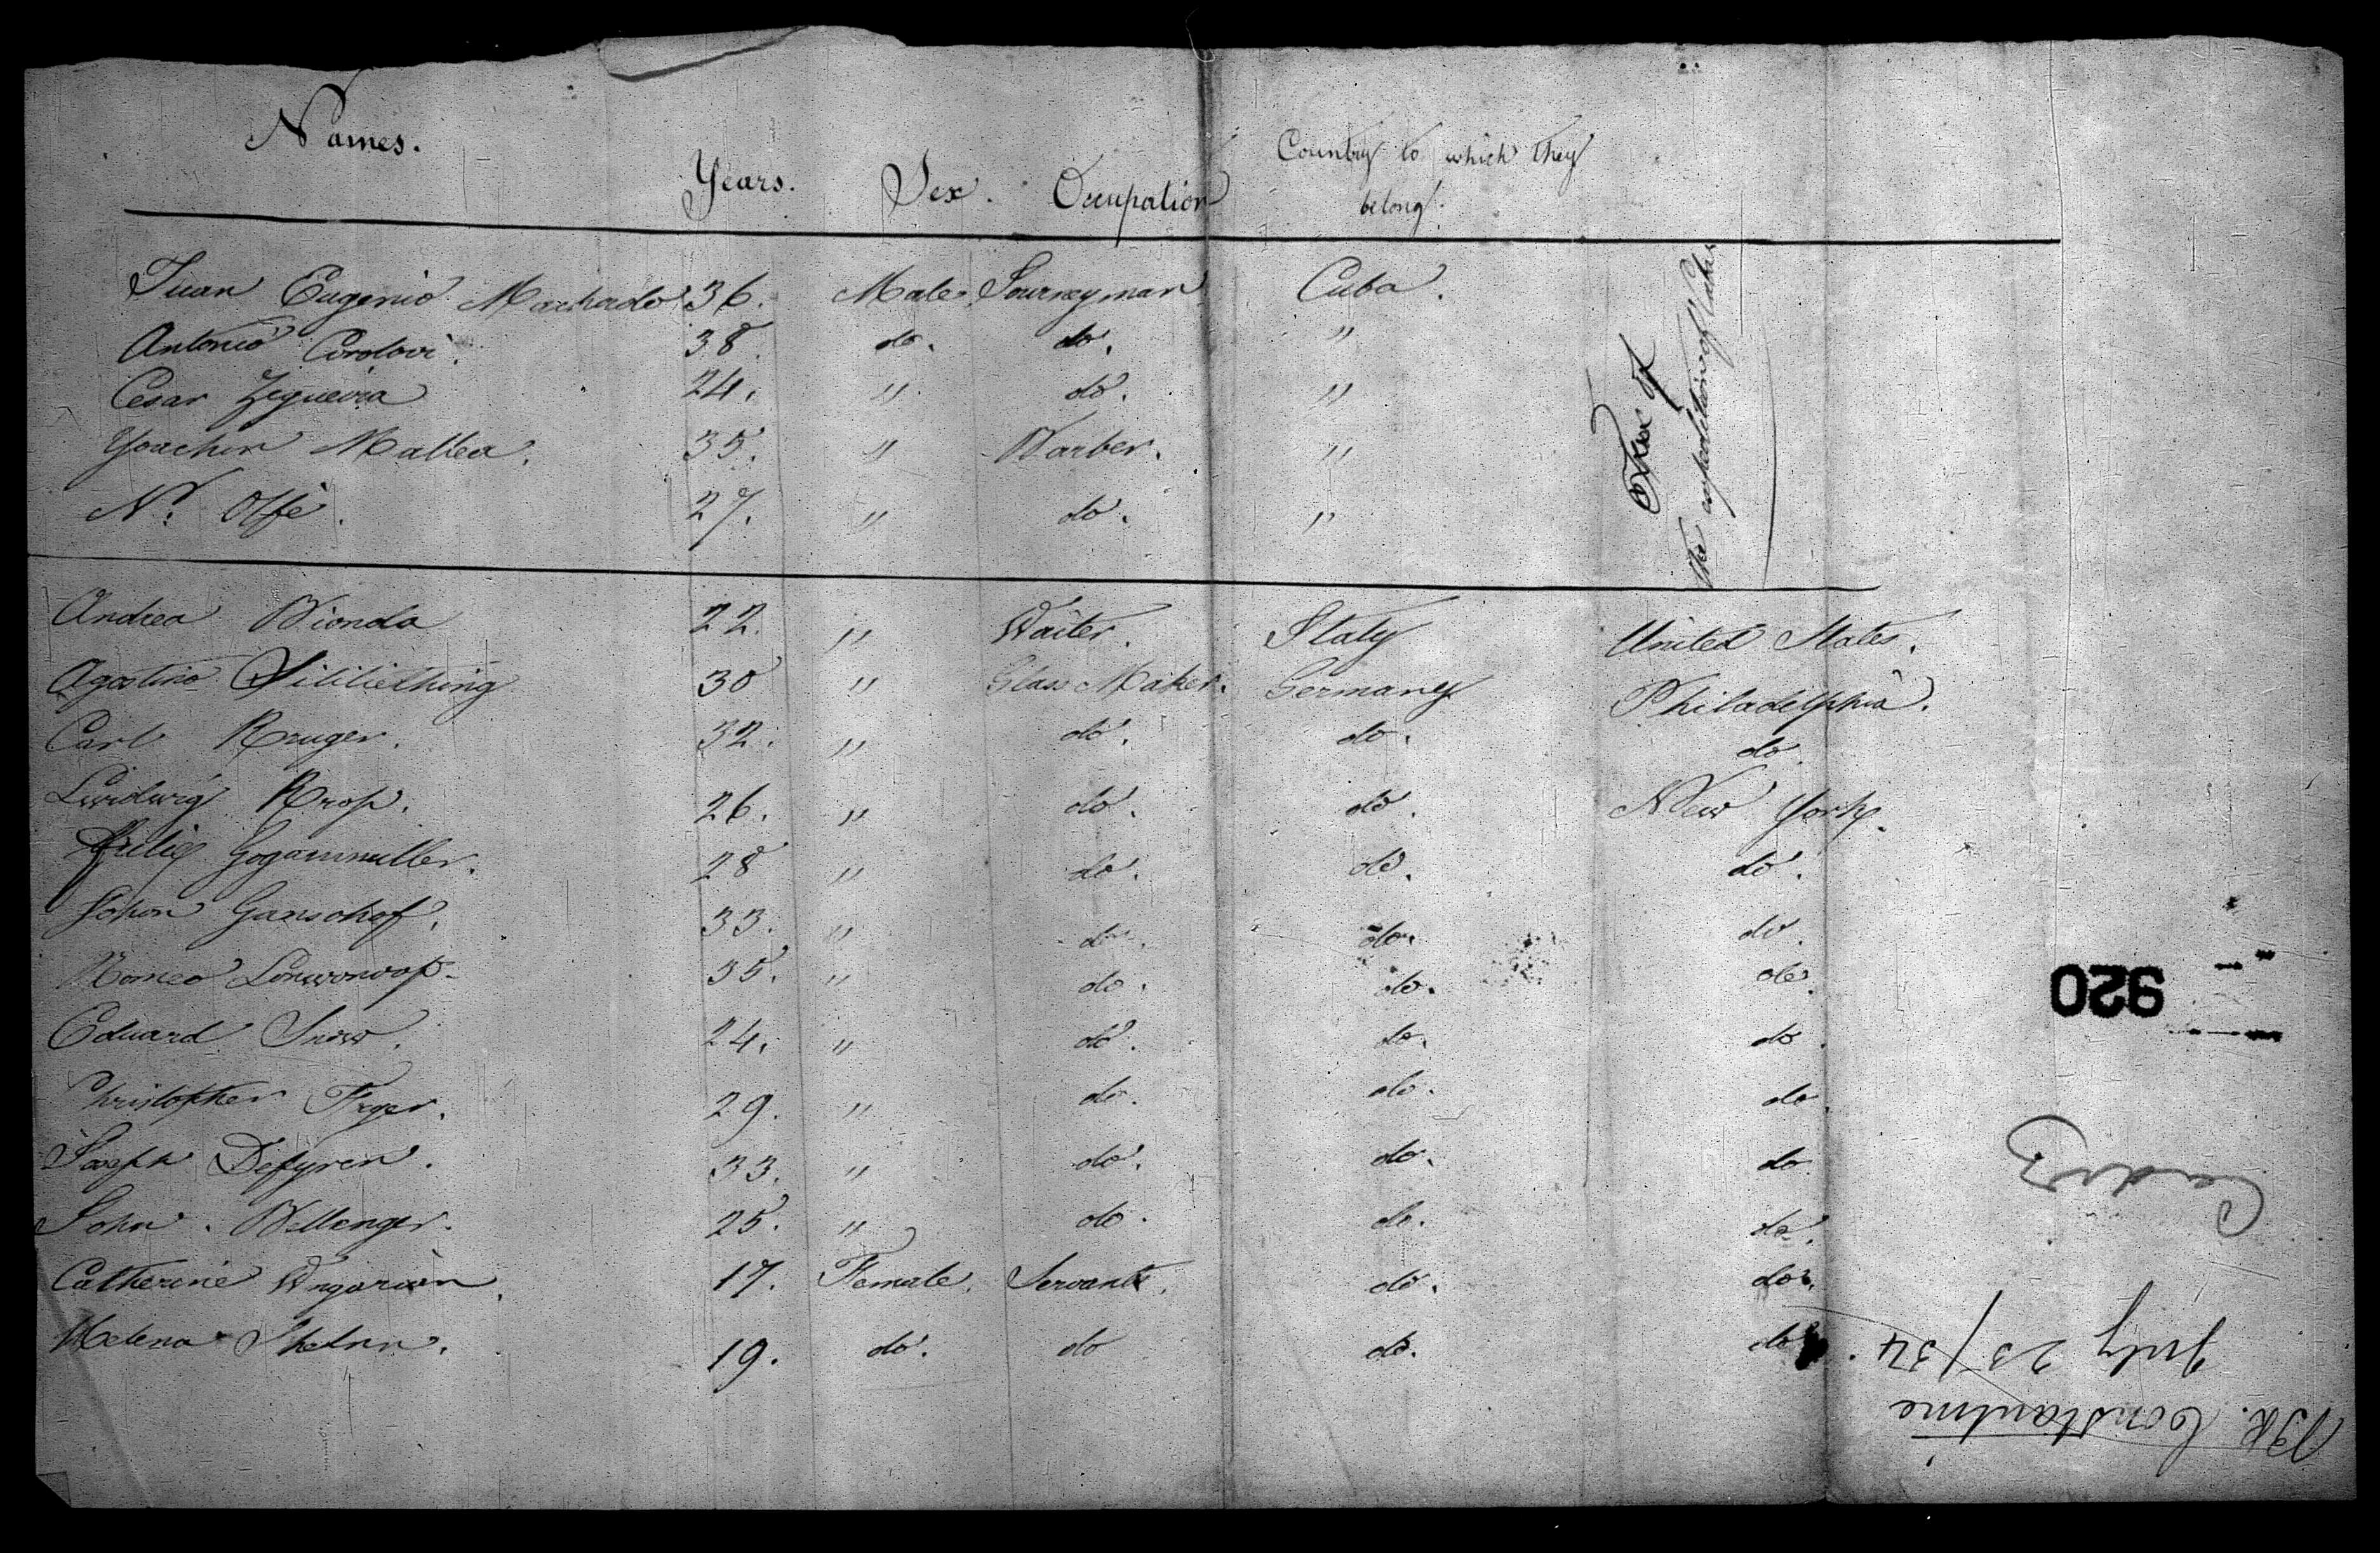 Names. Years. Sex. Occupation Country to which they
belong.
Juan Eugenio Machado 36. Male Journeyman Cuba.
Antonio Cordovi. 38. do. do. "
Cesar Zegueira 24. " do. "
Yoachin Mallea. 35. " Barber. "
N. Offe. 27. " do. "
Free of
the expedition of
Andrea Bionda 22. " Waiter. Italy United States.
Agostino 30 " Glass Maker. Germany Philadelphia.
Carl Kruger. 32. " do. do. do
Ludwig Krop. 26. " do. do. New York.
28 " do. do. do.
Gansohof. 33. " do. do. do.
Romeo 35. " do. do. do.
Eduard 24. " do. do. do.
Christopher 29. " do. do. do.
Joseph Defyren. 33. " do. do. do.
John. Wellenger. 25. " do. do. do.
Catherine 17. Female. Servant. do. do.
Helena 19. do. do do. do.
920
Cadiz
July 23/34
Bk. Constantine